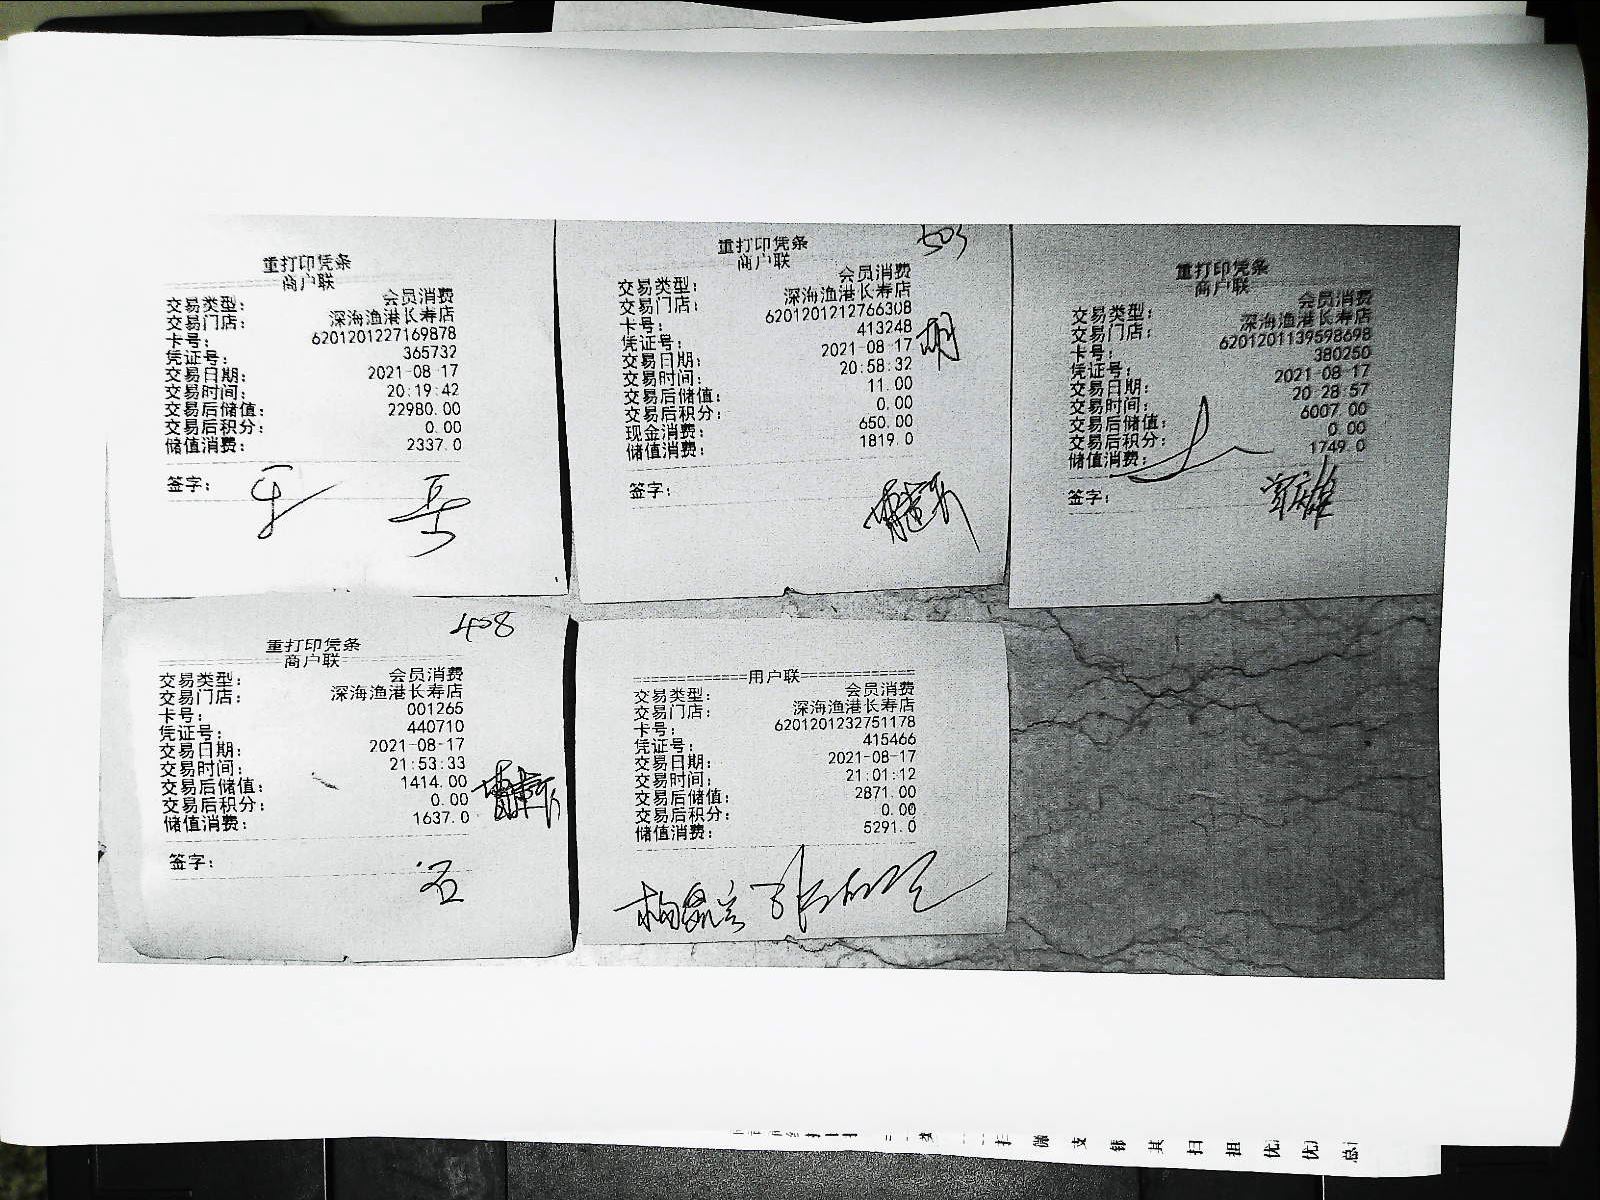 重打印凭条
商户联
交易类型: 会员消费
交易门店: 深海渔港长寿店
卡号: 6201201227169878
凭证号: 365732
交易日期: 2021-08-17
交易时间: 20:19:42
交易后储值: 22980.00
交易后积分: 0.00
储值消费: 2337.0
签字:
503
重打印凭条
商户联
交易类型: 会员消费
交易门店: 深海渔港长寿店
卡号: 6201201212766308
凭证号: 413248
交易日期: 2021-08-17
交易时间: 20:58:32
交易后储值: 11.00
交易后积分: 0.00
现金消费: 650.00
储值消费: 1819.0
胡
签字:
重打印凭条
商户联
交易类型: 会员消费
交易门店: 深海渔港长寿店
卡号: 6201201139598698
凭证号: 380250
交易日期: 2021-08-17
交易时间: 20:28:57
交易后储值: 6007.00
交易后积分: 0.00
储值消费: 1749.0
签字:
408
重打印凭条
商户联
交易类型: 会员消费
交易门店: 深海渔港长寿店
卡号: 001265
凭证号: 440710
交易日期: 2021-08-17
交易时间: 21:53:33
交易后储值: 1414.00
交易后积分: 0.00
储值消费: 1637.0
签字:
石
==============用户联==============
交易类型: 会员消费
交易门店: 深海渔港长寿店
卡号: 6201201232751178
凭证号: 415466
交易日期: 2021-08-17
交易时间: 21:01:12
交易后储值: 2871.00
交易后积分: 0.00
储值消费: 5291.0